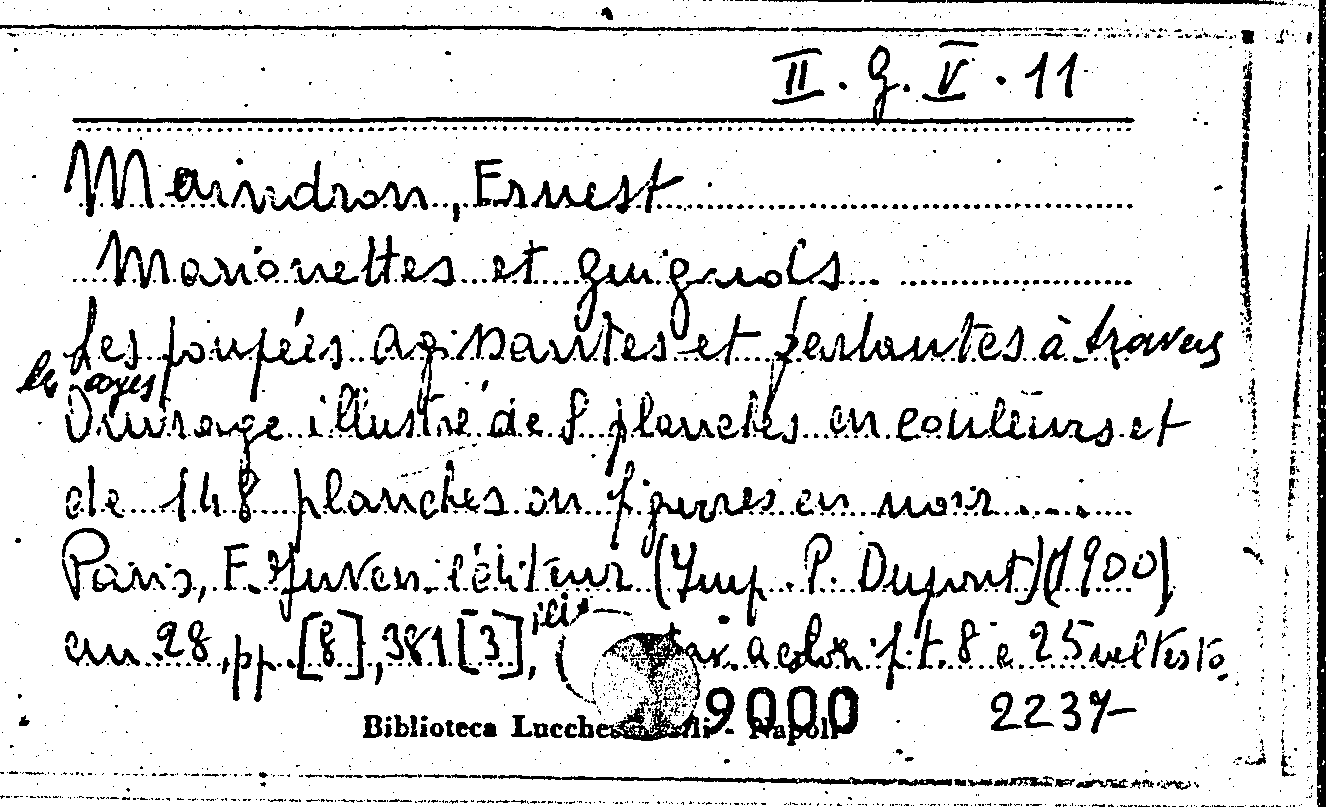 II. G. V. 11
Maindron, Ernest
Marionettes et guignols.
Les poupées agissantes et parlantes à travers
les ages
Ouvrage illustré de 8 planches en couleurs et
de 148 planches on figures en noir....
Paris, F. Juven. l'éditeur (Imp. P. Dupont) (1900)
cm 28, pp. [8], 381 [3], tav. a color. f. t. 8 e 25 nel testo.
9000 2237
Biblioteca - Napoli